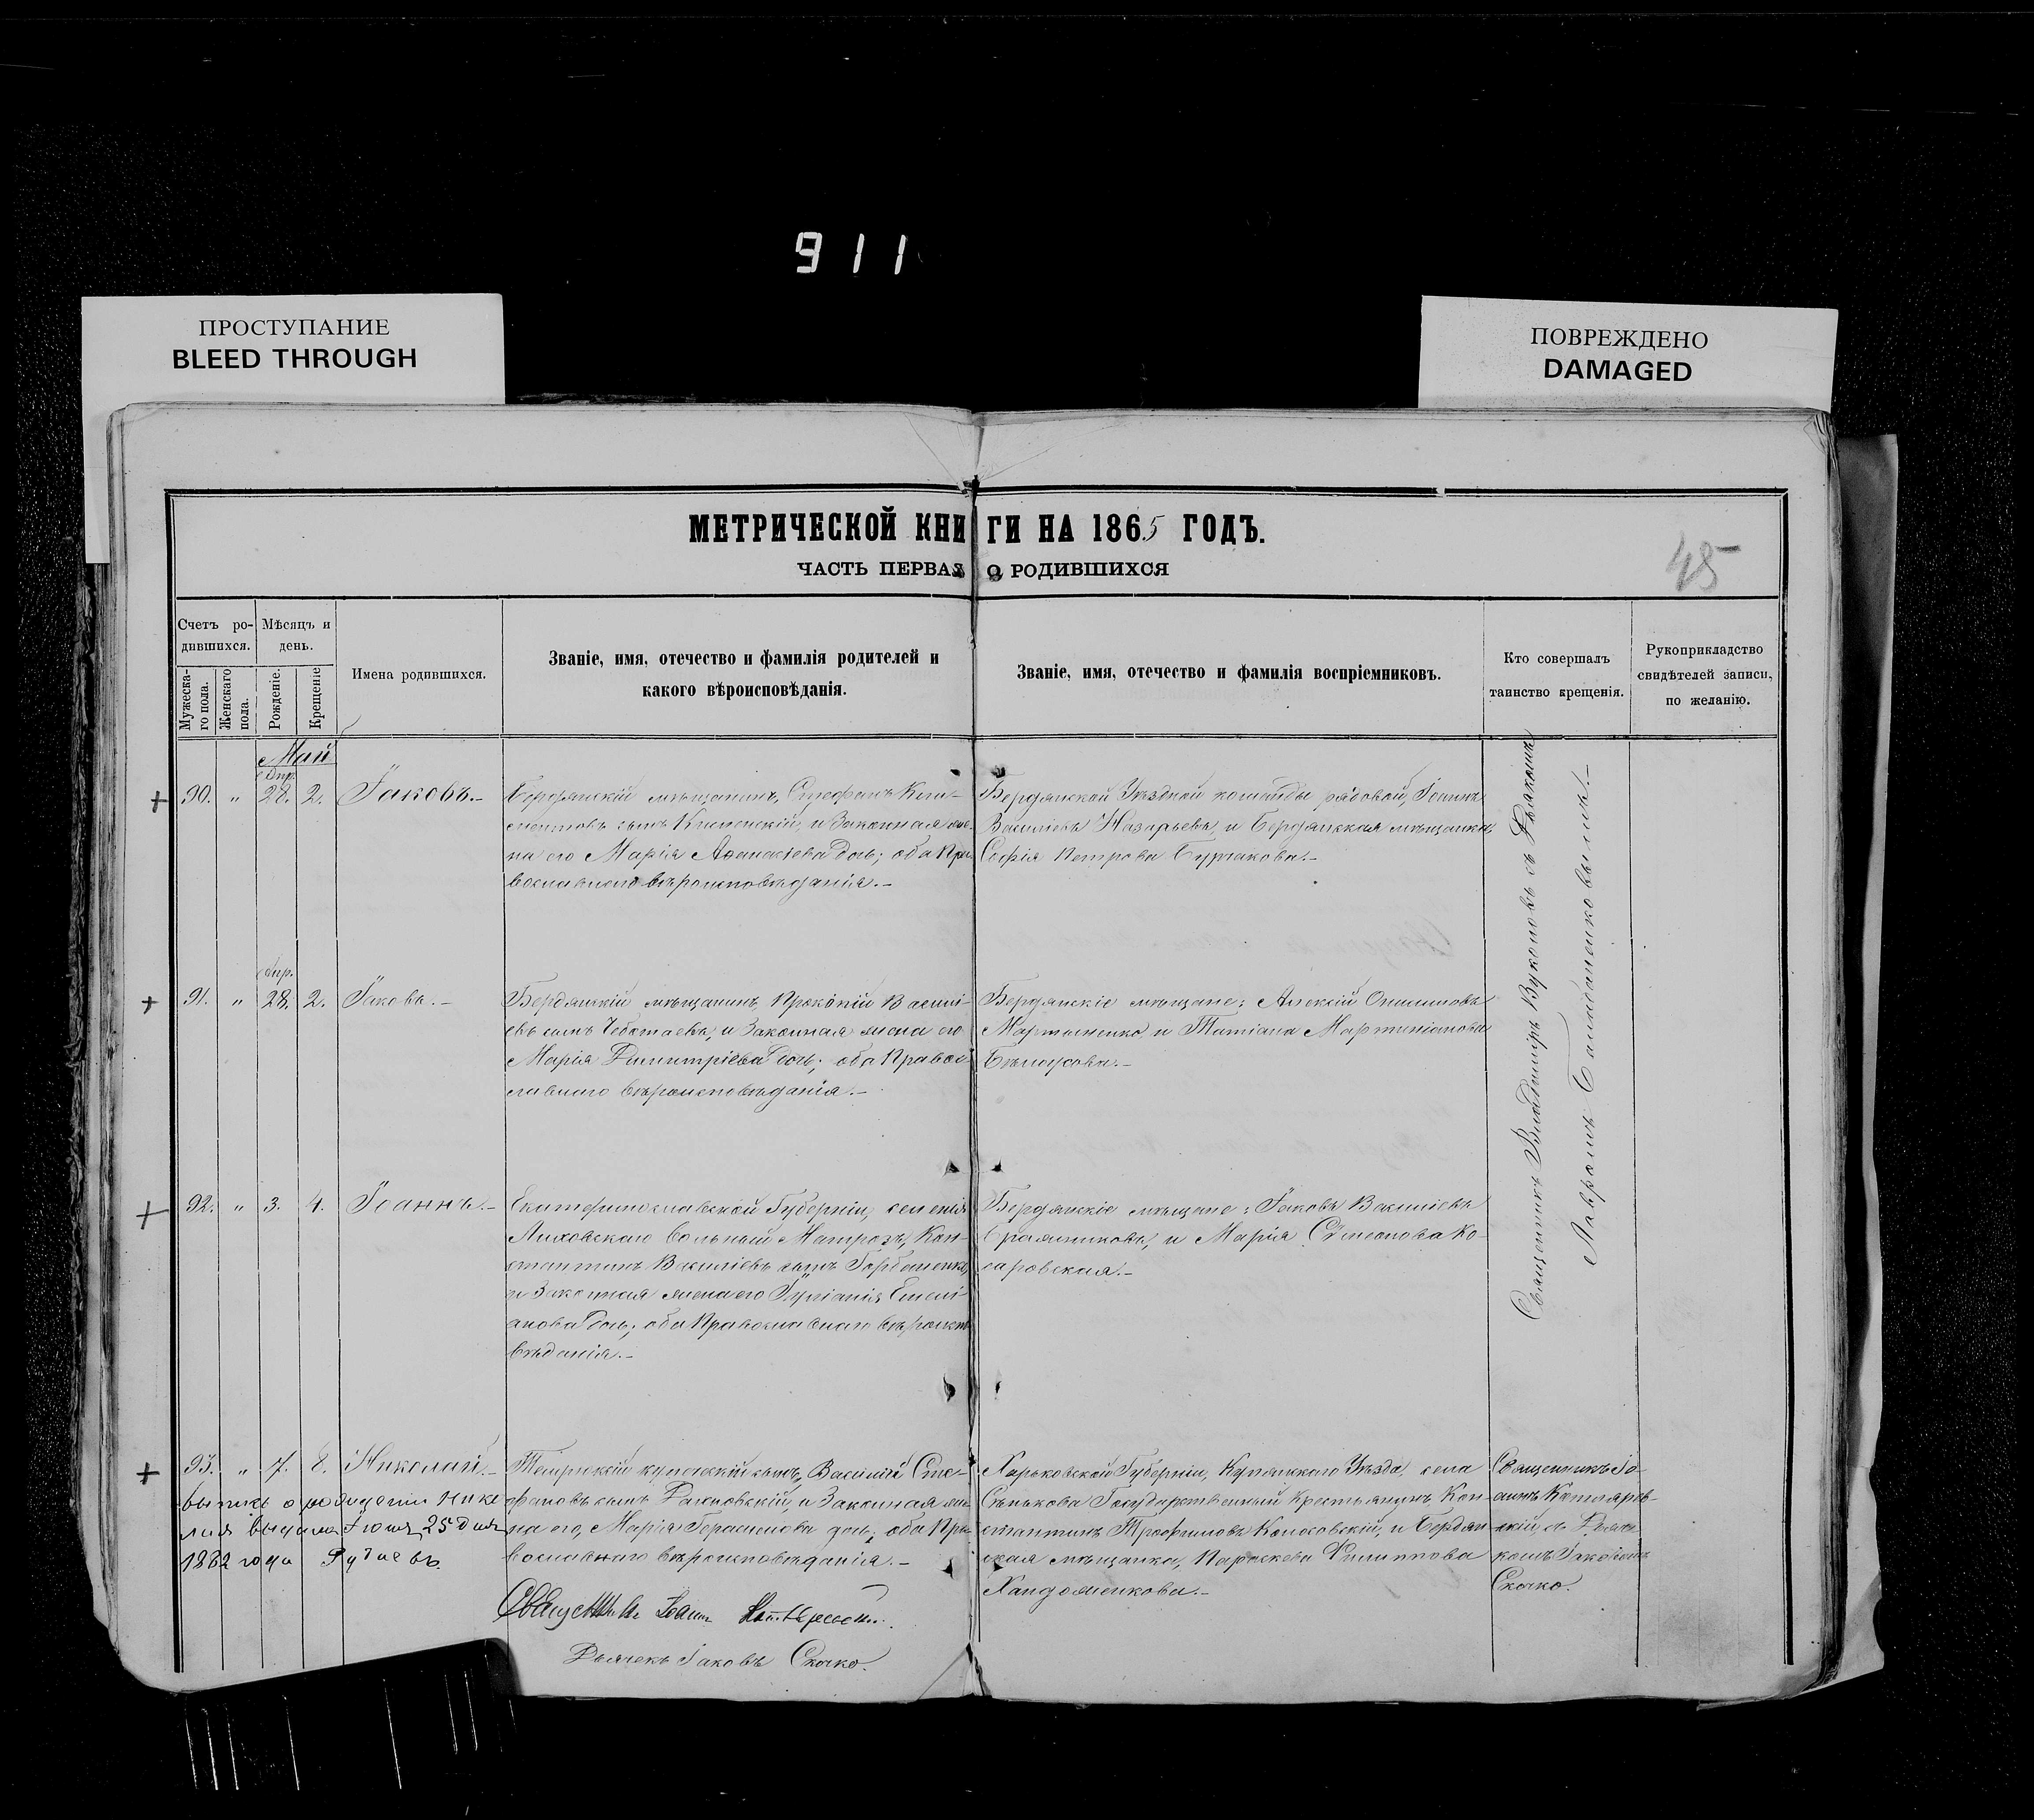 911
ПРОСТУПАНИЕ
BLEED THROUGH
ПОВРЕЖДЕНО
DAMAGED
МЕТРИЧЕСКОЙ КНИГИ НА 1865 ГОДЪ.
ЧАСТЬ ПЕРВАЯ О РОДИВШИХСЯ
45
Счетъ ро-
дившихся.
Мужеска-
го пола.
Женскаго
пола.
Мѣсяцъ и
день.
Рожденіе.
Крещеніе
Имена родившихся.
Званіе, имя, отечество и фамилія родителей и
какого вѣроисповѣданія.
Званіе, имя, отечество и фамилія воспріемниковъ.
Кто совершалъ
таинство крещенія.
Рукоприкладство
свидѣтелей записи,
по желанію.
Май
Апр.
90. " 28. 2. Іаковъ.-
Бердянскій мѣщанинъ, Стефанъ Кли-
ментовъ сынъ и Законная же-
на его Марія Аѳанасіева дочь; оба Пра-
вославнаго вѣроисповѣданія.-
Бердянской Уѣздной команды рядовой, Іоаннъ
Василіевъ Назарьевъ, и Бердянская мѣщанка,
Софія Петрова Бурлакова.-
Священникъ Владиміръ Вуколовъ съ Дьякомъ
Лавромъ
Апр.
91. " 28. 2. Іаковъ.-
Бердянскій мѣщанинъ, Прокопій Василі-
евъ сынъ Чеботаевъ, и Законная жена его
Марія Димитріева дочь; оба Правос-
лавнаго вѣроисповѣданія.-
Бердянскіе мѣщане: Алексій
Мартыненко, и Татіана Мартиніанова
Бѣлоусова.-
92. " 3. 4. Іоаннъ.-
Екатеринославской Губерніи, селенія
Лиховскаго вольный Матрозъ, Кон-
стантинъ Василіевъ сынъ Горбаненко,
и Законная жена его Іуліанія Емелі-
анова дочь; оба Православнаго вѣроиспо-
вѣданія.-
Бердянскіе мѣщане: Іаковъ Василіевъ
и Марія Сѵмеонова Ко-
саровская.-
93. " 7. 8. Николай.-
Темрюкскій купеческій сынъ, Василій Сте-
фановъ сынъ и Законная же-
на его, Марія Герасимова дочь; оба Пра-
вославнаго вѣроисповѣданія.-
Харьковской Губерніи, Купянскаго Уѣзда, села
Сенькова Государственный Крестьянинъ Кон-
стантинъ Трофимовъ Колосовскій, и Бердян-
ская мѣщанка, Параскева Филиппова
Священникъ Іо-
аннъ Котлярев-
скій, съ Дьяч-
комъ Іаковомъ
Скочко.
выпись о рождении Нико
лая выдана Іюня 25 дня
1882 года
Священникъ Іоаннъ Котляревскій.
Дьячекъ Іаковъ Скочко.